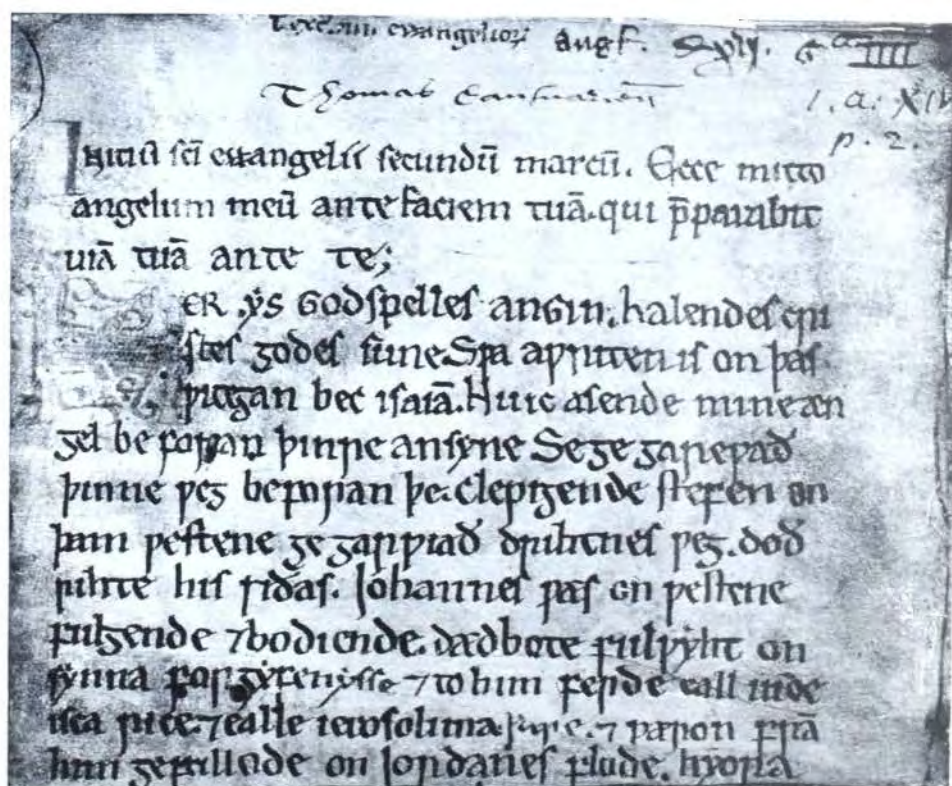 Text iiii evvangelioꝝ angł. Gᵃ IIII
Thomas Cantuarien̄ I. A. XIV
p. 2.
Initiū sc̄i evvangelii secundū marcū. Ecce mitto
angelum meū ante faciem tuā. qui p̄parabit
uiā tuā ante te;
ER .ẏs GODspelles ANGIN. halendes cri
stes godes sune. Sƿa aƿriten is on þas
ƿitegan bec isaiā. Nu ic asende minne æn
gel be foran þinre ansyne Se ge gareƿað
þinne ƿeg beforan þe. clepigende stefen on
þam ƿestene ge garƿiað drihtnes ƿeg. doð
rihte his siðas. Johannes ƿas on ƿestene
fulgende ⁊ bodiende. dædbote fulƿẏht on
sẏnna forgẏfenẏsse ⁊ to him ferde eall iude
isca rice. ⁊ ealle ierosolima ƿare. ⁊ ƿaron frā
him gefullode on Jordanes flode. hẏora